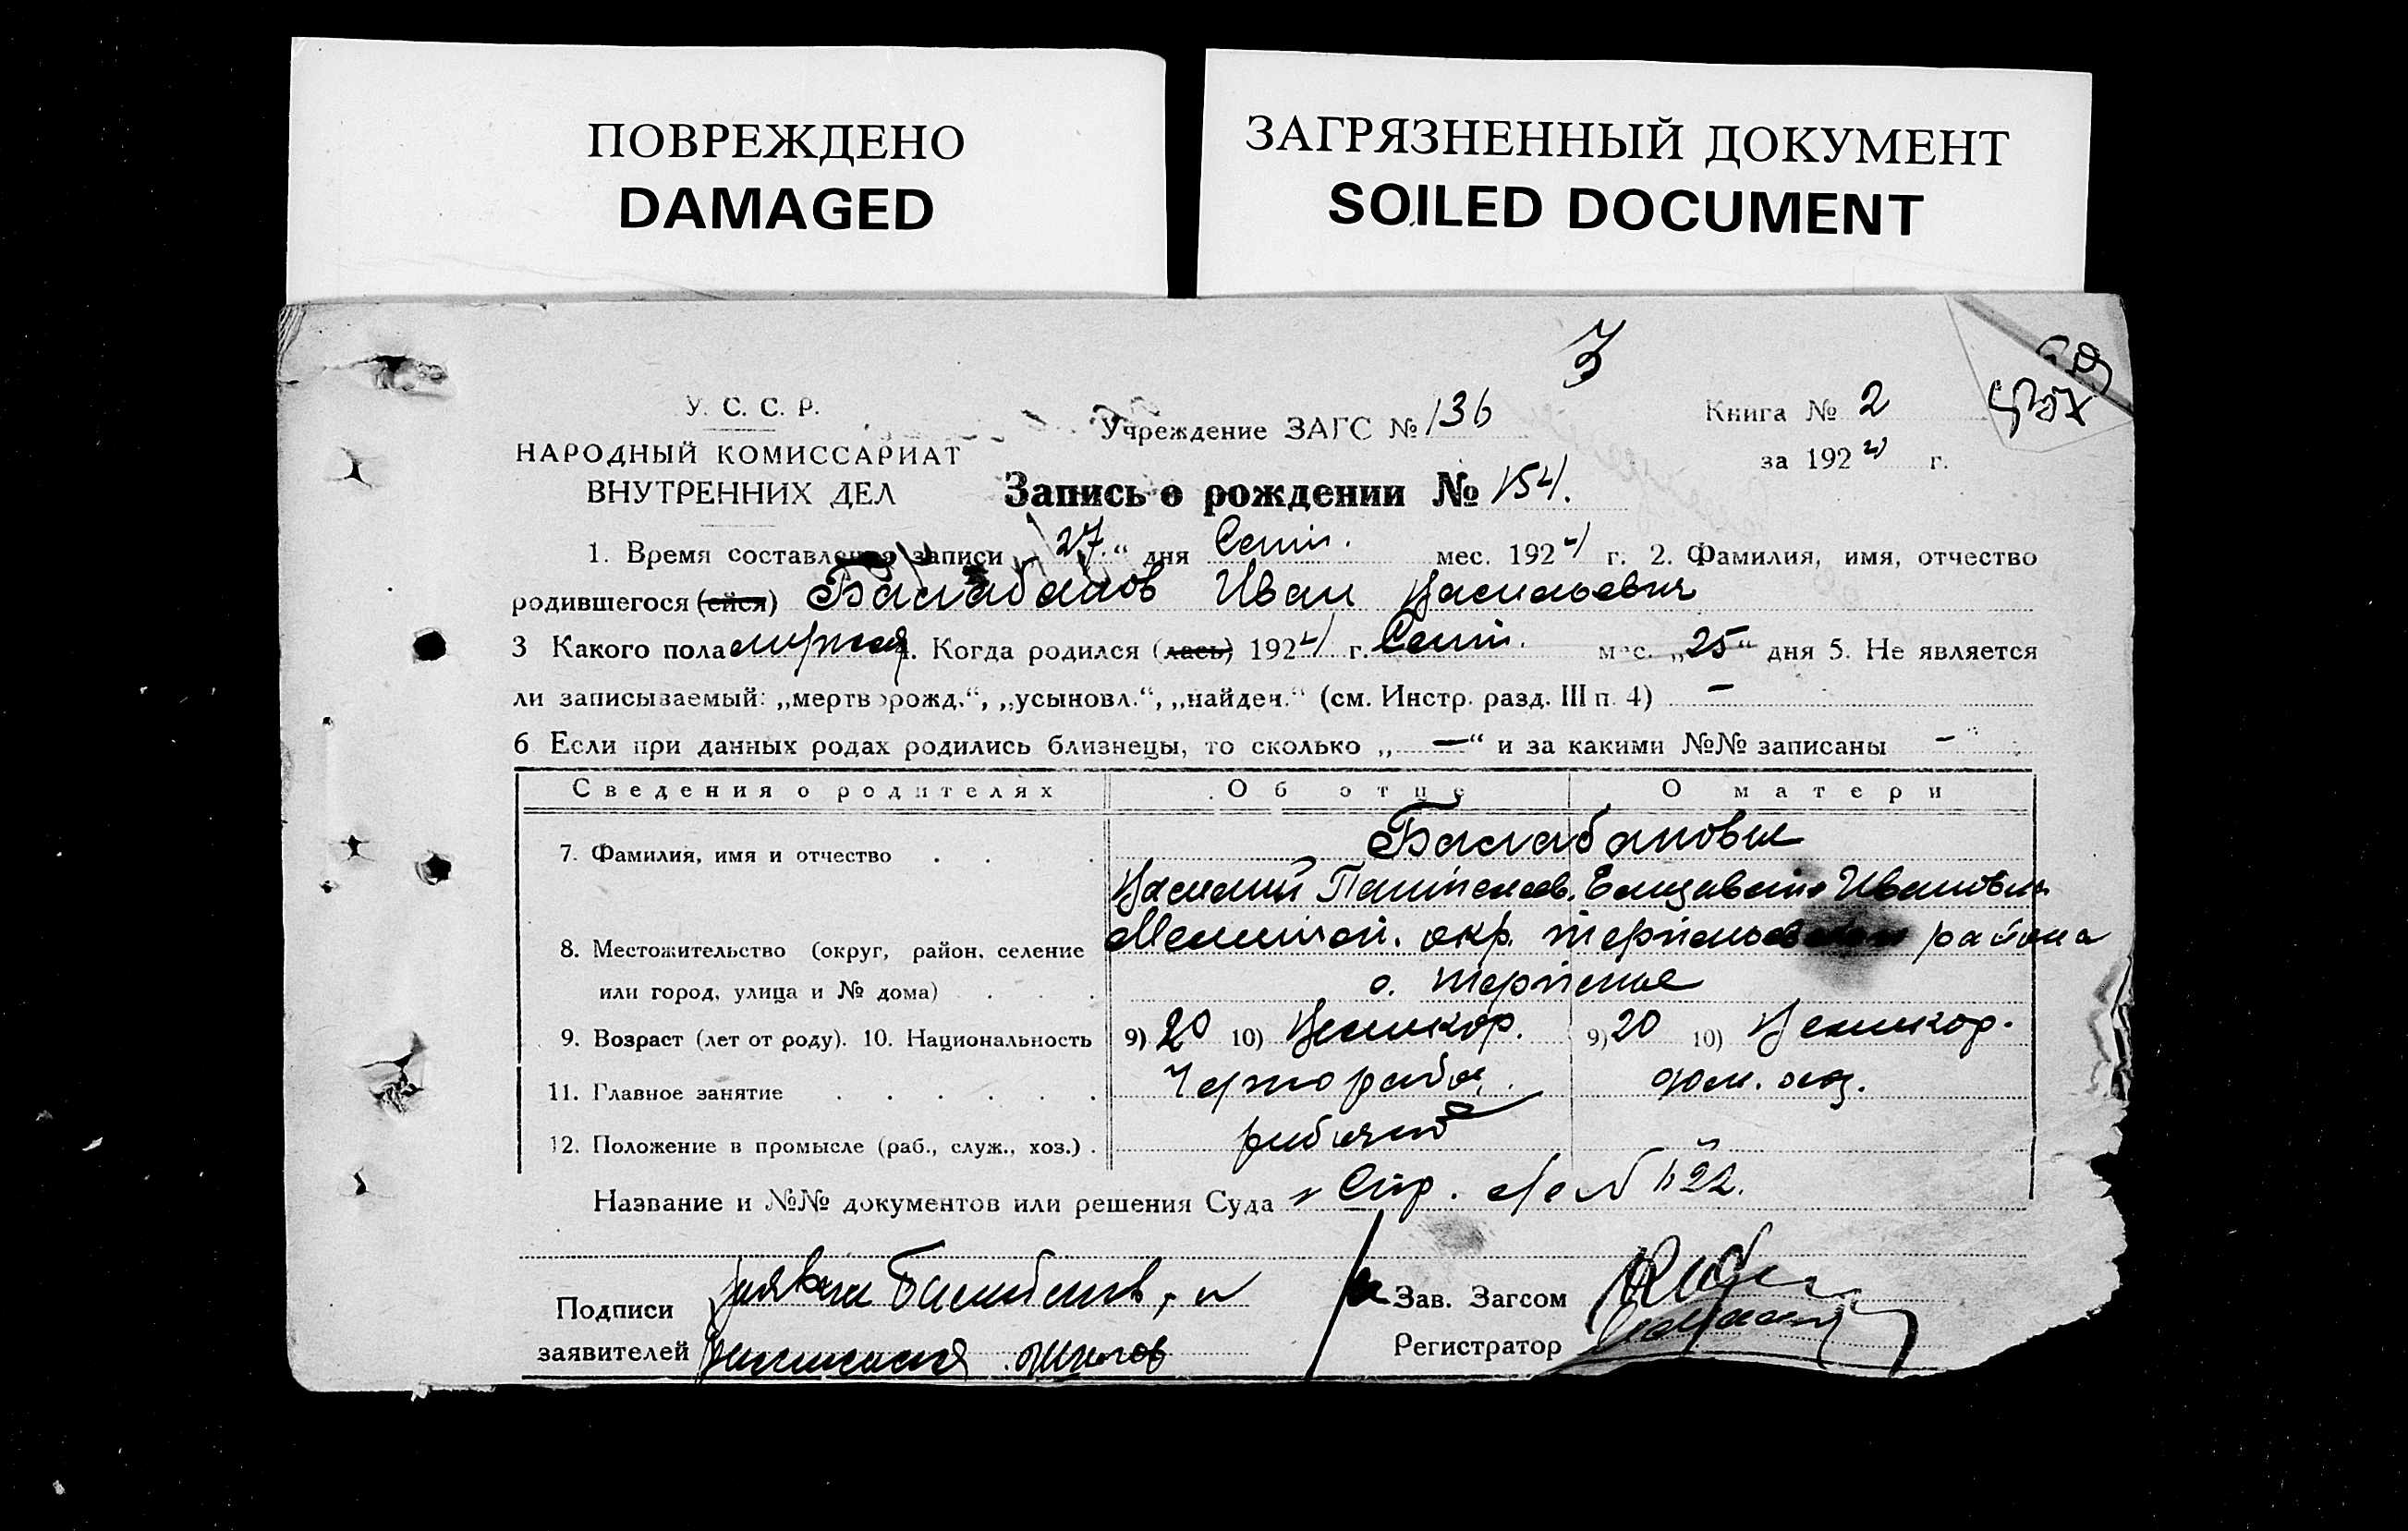 ПОВРЕЖДЕНО
DAMAGED
ЗАГРЯЗНЕННЫЙ ДОКУМЕНТ
SOILED DOCUMENT
3
У. С. С. Р.
НАРОДНЫЙ КОМИССАРИАТ
ВНУТРЕННИХ ДЕЛ
Учреждение ЗАГС № 136
Книга № 2
за 1924 г.
Запись о рождении № 154.
1. Время составления записи „27.“ дня Сент. мес. 1924 г. 2. Фамилия, имя, отчество
родившегося (ейся) Балабанов Иван Васильевич
3 Какого пола мужск. 4. Когда родился (лась) 1924 г. Сент. мес. „25“ дня 5. Не является
ли записываемый: „мертворожд.“, „усыновл.“, „найден.“ (см. Инстр. разд. III п. 4) —
6 Если при данных родах родились близнецы, то сколько „—“ и за какими №№ записаны —
Сведения о родителях Об отце О матери
7. Фамилия, имя и отчество Балабановы
Василий Пантелеев. Елизавета Ивановна
8. Местожительство (округ, район, селение Мелитоп. окр. района
или город, улица и № дома) с. Терпенье
9. Возраст (лет от роду). 10. Национальность 9) 20 10) Великор. 9) 20 10) Великор.
11. Главное занятие Чернораб. дом. хоз.
12. Положение в промысле (раб., служ., хоз.) рабочий "
Название и №№ документов или решения Суда Спр. с/с № 1122.
Подписи Балабанов
заявителей
Зав. Загсом
Регистратор